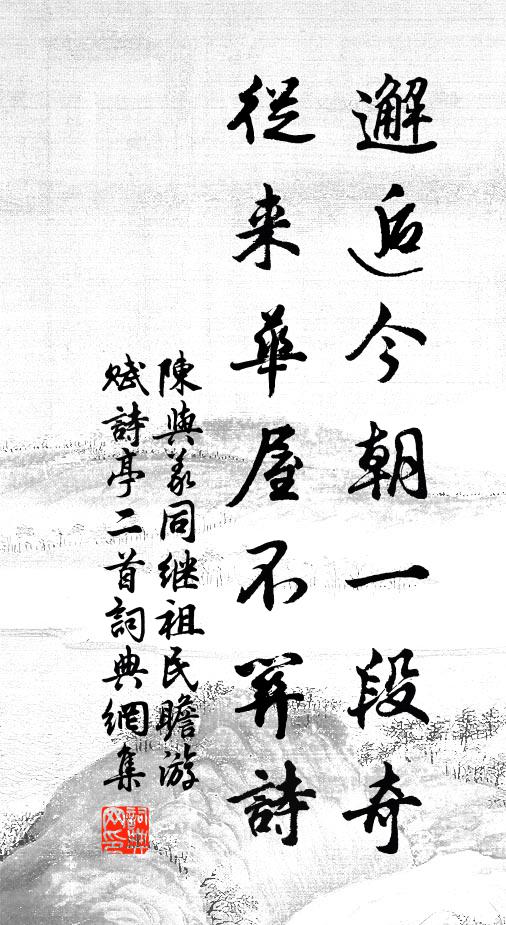 邂逅今朝一段奇
從来華屋不關詩
陳與義同继祖民瞻游
赋詩亭二首詞典網集
詞典网印